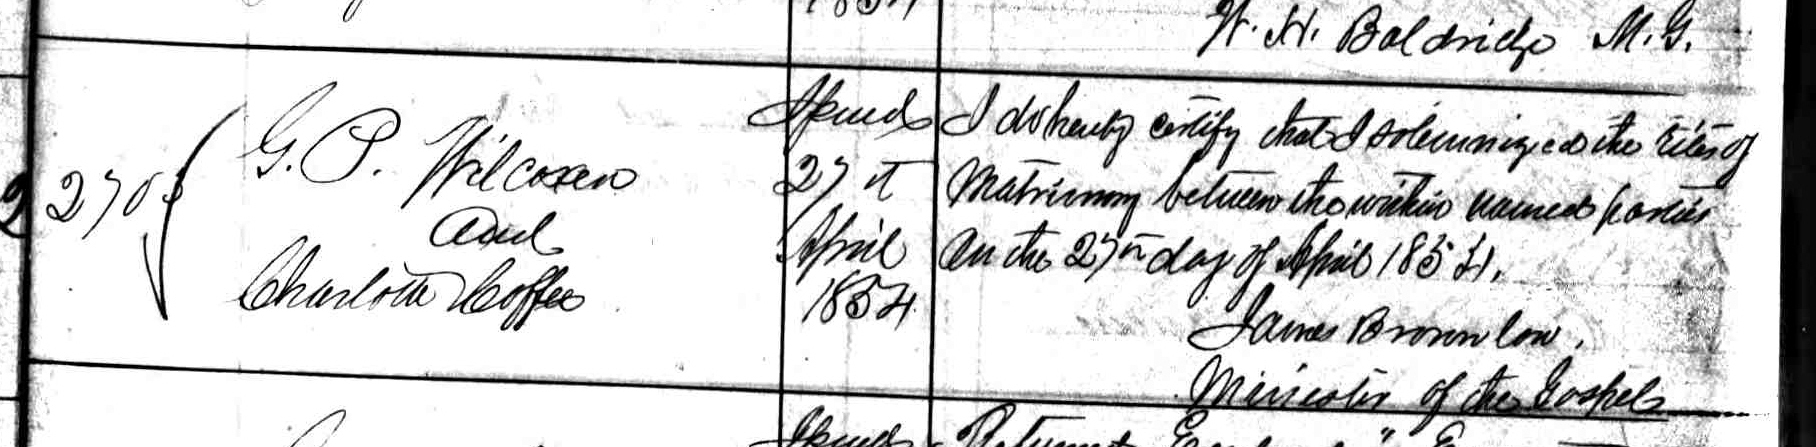 1854
W. H. Baldridge M. G.
2703
G. P. Wilcoxen
and
Charlotte Coffee
Issued
27th
April
1854
I do hereby certify that I solemnized the rites of
Matrimony between the within named parties
on the 27th day of April 1854.
James Brownlow.
Minister of the Gospel
Issued